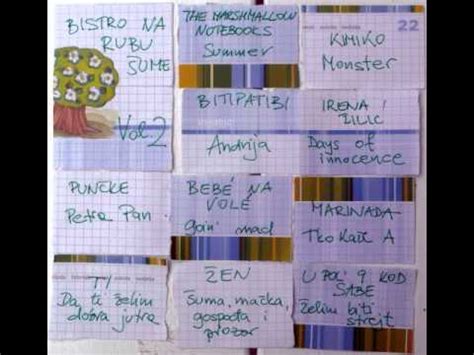 BISTRO NA
RUBU
ŠUME
Vol. 2
THE MARSHMALLOW
NOTEBOOKS
Summer
22
KIMIKO
Monster
BITIPATIBI
Andrija
IRENA
ŽILIĆ
Days of
innocence
PUNČKE
Petra Pan
BEBÉ NA
VOLÉ
goin' mad
MARINADA
Tko kaže A
TI
Da ti želim
dobra jutra
ŽEN
Šuma, mačka,
gospođa i
prozor
U POL' 9 KOD
SABE
Želim biti
strejt